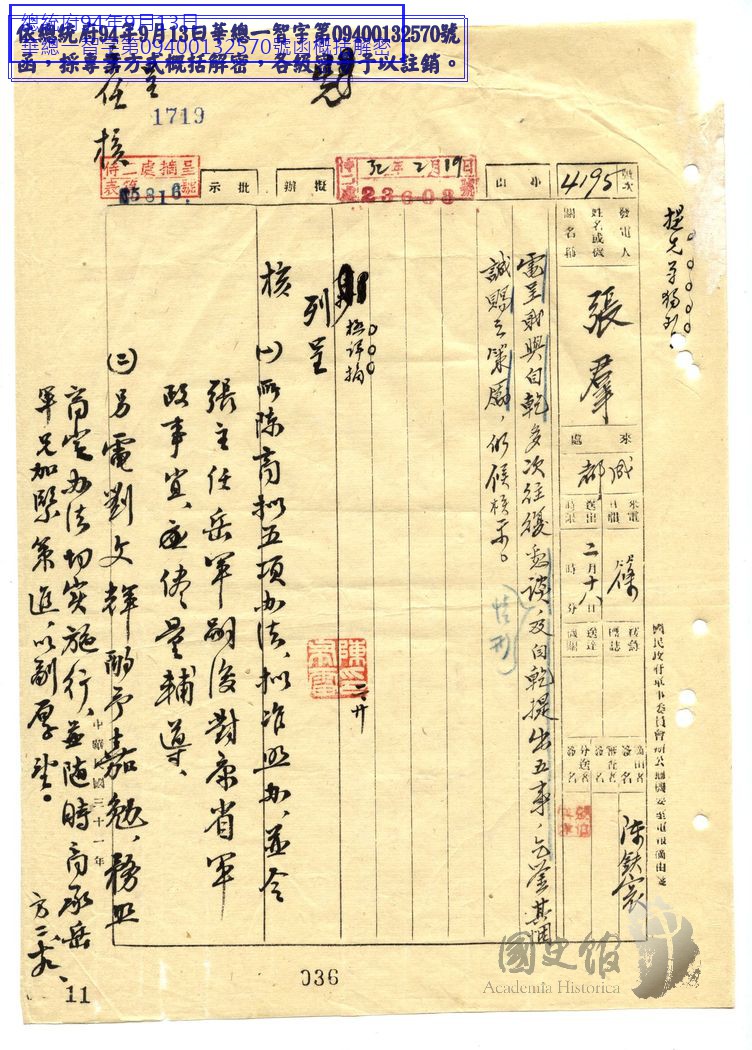 總統府94年9月13日
華總一智字第09400132570號函概括解密
依總統府94年9月13日華總一智字第09400132570號
函，採專案方式概括解密，各級密等予以註銷。
呈
主任 核
1719
號次
4195
由 小
32年2月19日
侍二處
號
23608
擬辦
批示
呈摘處二侍
5816
發電人
姓名或機
關名稱
張羣
來處
成都
來電
日韻
篠
送出
時限
二月十八日
時 分
送達
機關
陳鉄寰
國民政府軍事委員會辦公廳機要室電報摘由箋
電呈我與自乾多次往復勸談，及自乾提出五事，乞鑒其悃
誠賜予策勵，仍候核示。
極詳摘
列呈
核
(一)所陳商擬五項办法，擬准照办，並令
張主任岳軍嗣後對康省軍
政事宜，應儘量輔導、
(二)另電劉文輝酌予嘉勉，務照
商定办法切实施行，並随時商承岳
軍兄加緊策進，以副厚望。
中華民國三十一年
二廿
036
11
國史館
Academia Historica